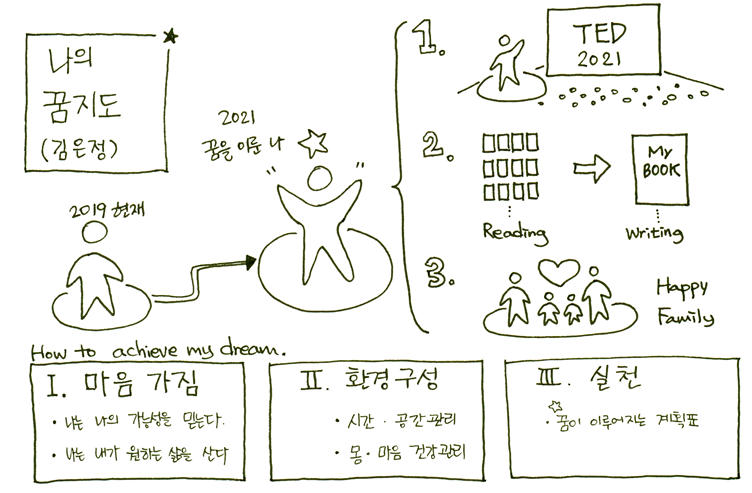 나의
꿈지도
(김은정)
2019 현재
2021
꿈을 이룬 나
1.
TED
2021
2.
My
BOOK
Reading
Writing
3.
Happy
Family
How to achieve my dream.
I. 마음 가짐
· 나는 나의 가능성을 믿는다.
· 나는 내가 원하는 삶을 산다
II. 환경구성
· 시간 · 공간관리
· 몸 · 마음 건강관리
III. 실천
· 꿈이 이루어지는 계획표